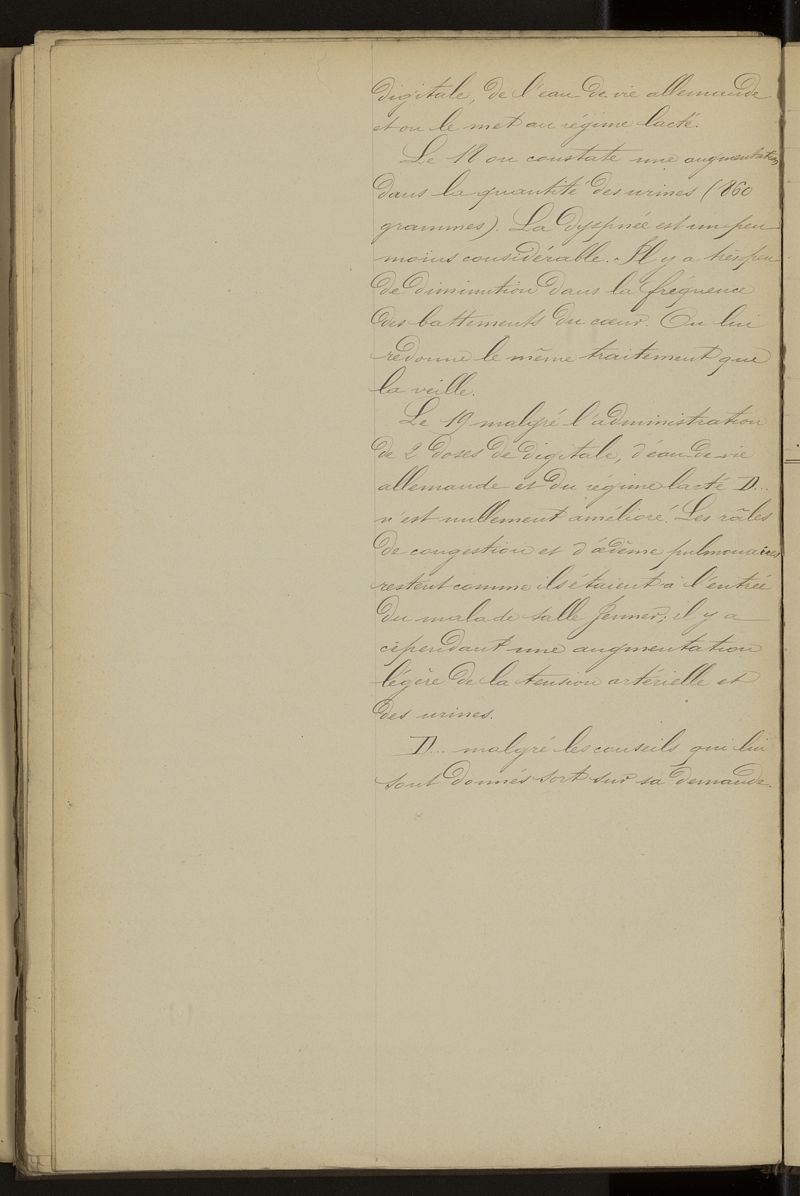 digitale, de l'eau de vie allemande
et on le met au régime lacté.
Le 18 on constate une augmentation
dans la quantité des urines (860
grammes). La dyspnée est un peu
moins considérable. Il y a très peu
de diminution dans la fréquence
des battements du cœur. On lui
redonne le même traitement que
la veille.
Le 19 malgré l'administration
de 2 doses de digitale, d'eau de vie
allemande et du régime lacté D...
n'est nullement amélioré. Les râles
de congestion et d'œdème pulmonaires
restent comme ils étaient à l'entrée
du malade salle Jenner; il y a
cependant une augmentation
légère de la tension artérielle et
des urines.
D... malgré les conseils qui lui
sont donnés sort sur sa demande.